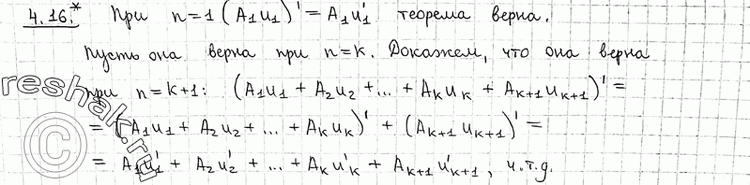 4.16.* При n=1 (A₁u₁)' = A₁u₁' теорема верна.
Пусть она верна при n=k. Докажем, что она верна
при n=k+1: (A₁u₁ + A₂u₂ + ... + Aₖuₖ + Aₖ₊₁uₖ₊₁)' =
= (A₁u₁ + A₂u₂ + ... + Aₖuₖ)' + (Aₖ₊₁uₖ₊₁)' =
= A₁u₁' + A₂u₂' + ... + Aₖu'ₖ + Aₖ₊₁u'ₖ₊₁, ч.т.д.
reshak.ru
©